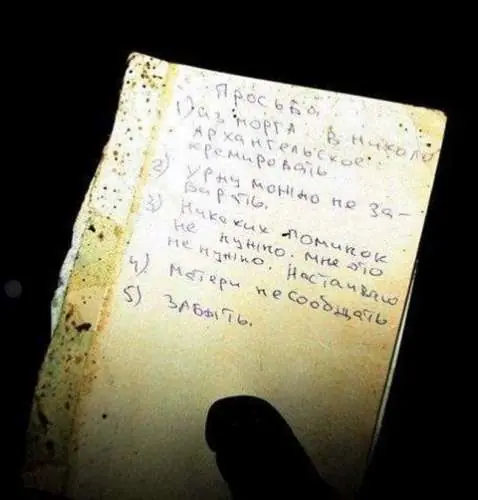 Просьба
1) из морга в Николо
Архангельское
кремировать
2) урну можно не за-
бирать.
3) никаких поминок
не нужно. мне это
не нужно. Настаиваю
4) матери не сообщать
5) забыть.